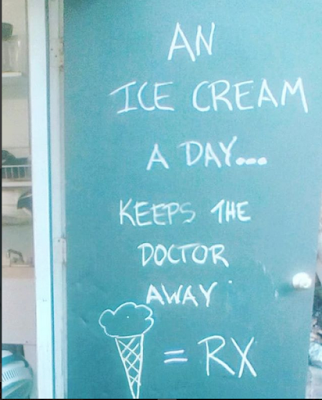 AN
ICE CREAM
A DAY...
KEEPS THE
DOCTOR
AWAY
= RX